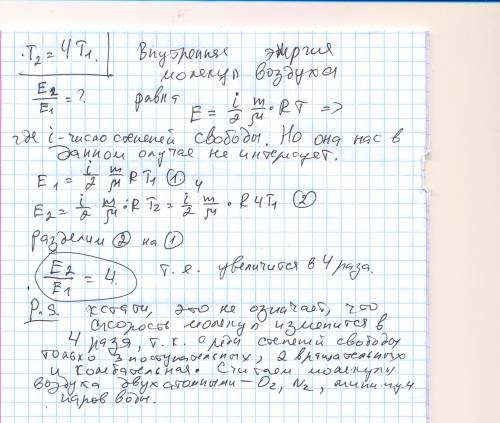 T₂ = 4T₁. Внутренняя энергия
молекул воздуха
E₂/E₁ = ? равна E = i/2 · m/μ · RT =>
где i - число степеней свободы. Но она нас в
данном случае не интересует.
E₁ = i/2 m/μ RT₁ ①
E₂ = i/2 m/μ · RT₂ = i/2 m/μ · R4T₁ ②
разделим ② на ①
E₂/E₁ = 4. т.е. увеличится в 4 раза.
P.S. кстати, это не означает, что
скорость молекул изменится в
4 раза, т.к. среди степеней свободы
только 3 поступательных, 2 вращательных
и колебательная. Считаем молекулы
воздуха двухатомными - O₂, N₂, минимум
паров воды.